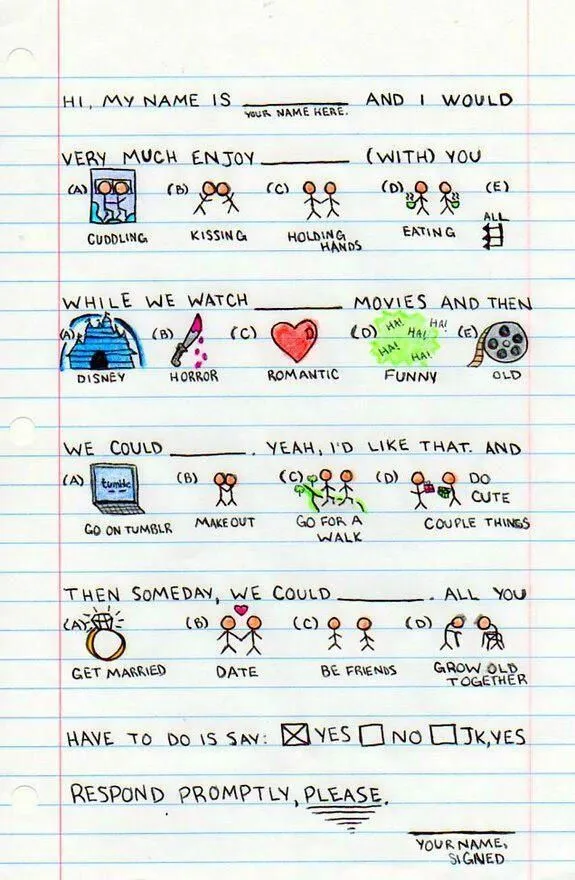 HI, MY NAME IS __________ AND I WOULD
YOUR NAME HERE.
VERY MUCH ENJOY __________ (WITH) YOU
(A) (B) (C) (D) (E)
ALL
CUDDLING KISSING HOLDING HANDS EATING
WHILE WE WATCH __________ MOVIES AND THEN
(A) (B) (C) (D) HA! HA! HA! HA! HA! (E)
DISNEY HORROR ROMANTIC FUNNY OLD
WE COULD __________. YEAH, I'D LIKE THAT. AND
(A) tumblr (B) (C) (D) DO CUTE
GO ON TUMBLR MAKEOUT GO FOR A WALK COUPLE THINGS
THEN SOMEDAY, WE COULD __________. ALL YOU
(A) (B) (C) (D)
GET MARRIED DATE BE FRIENDS GROW OLD TOGETHER
HAVE TO DO IS SAY: ☒ YES ☐ NO ☐ JK, YES
RESPOND PROMPTLY, PLEASE.
YOUR NAME, SIGNED